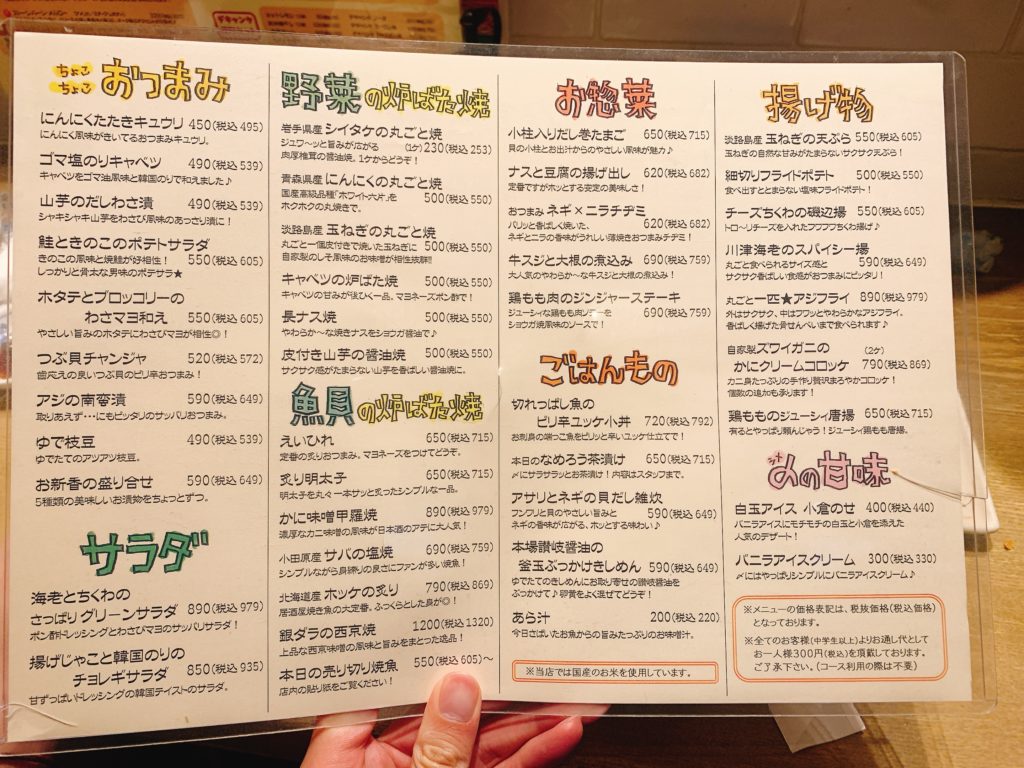 ちょこ
ちょこ おつまみ
にんにくたたきキュウリ 450(税込 495)
にんにく風味がきいてるおつまみキュウリ。
ゴマ塩のりキャベツ 490(税込 539)
キャベツをゴマ油風味と韓国のりで和えました♪
山芋のだしわさ漬 490(税込 539)
シャキシャキ山芋をわさび風味のあっさり漬に!
鮭ときのこのポテトサラダ
きのこの風味と焼鮭が好相性! 550(税込 605)
しっかりと骨太な男味のポテサラ★
ホタテとブロッコリーの
わさマヨ和え 550(税込 605)
やさしい旨みのホタテにわさびマヨが相性◎!
つぶ貝チャンジャ 520(税込 572)
歯応えの良いつぶ貝のピリ辛おつまみ!
アジの南蛮漬 590(税込 649)
取りあえず・・・にもピッタリのサッパリおつまみ。
ゆで枝豆 490(税込 539)
ゆでたてのアツアツ枝豆。
お新香の盛り合せ 590(税込 649)
5種類の美味しいお漬物をちょっとずつ。
サラダ
海老とちくわの
さっぱりグリーンサラダ 890(税込 979)
ポン酢ドレッシングとわさびマヨのサッパリサラダ!
揚げじゃこと韓国のりの
チョレギサラダ 850(税込 935)
甘ずっぱいドレッシングの韓国テイストのサラダ。
野菜の炉ばた焼
岩手県産 シイタケの丸ごと焼
ジュワ〜ッと旨みが広がる (1ケ)230(税込 253)
肉厚椎茸の醤油焼。1ケからどうぞ!
青森県産 にんにくの丸ごと焼
国産高級品種「ホワイト六片」を 500(税込 550)
ホクホクの丸焼きで。
淡路島産 玉ねぎの丸ごと焼
丸ごと一個皮付きで焼いた玉ねぎに 500(税込 550)
自家製のしそ風味のお味噌が相性抜群!!
キャベツの炉ばた焼 500(税込 550)
キャベツの甘みが後ひく一品。マヨネーズポン酢で!
長ナス焼 500(税込 550)
やわらか〜な焼きナスをショウガ醤油で♪
皮付き山芋の醤油焼 500(税込 550)
サクサク感がたまらない山芋を香ばしい醤油焼に。
魚貝の炉ばた焼
えいひれ 650(税込 715)
定番の炙りおつまみ。マヨネーズをつけてどうぞ。
炙り明太子 650(税込 715)
明太子を丸々一本サッと炙ったシンプルな一品。
かに味噌甲羅焼 890(税込 979)
濃厚なカニ味噌の風味が日本酒のアテに大人気!
小田原産 サバの塩焼 690(税込 759)
シンプルながら身締りの良さにファンが多い焼魚!
北海道産 ホッケの炙り 790(税込 869)
居酒屋焼き魚の大定番。ふっくらとした身が◎!
銀ダラの西京焼 1200(税込 1320)
上品な西京味噌の風味と旨みをまとった逸品!
本日の売り切り焼魚 550(税込 605)〜
店内の貼り紙をご覧ください!
お惣菜
小柱入りだし巻たまご 650(税込 715)
貝の小柱とお出汁からのやさしい風味が魅力♪
ナスと豆腐の揚げ出し 620(税込 682)
定番ですがホッとする安定の美味しさ!
おつまみ ネギ×ニラチヂミ
パリッと香ばしく焼いた、 620(税込 682)
ネギとニラの香味がうれしい薄焼きおつまみチヂミ!
牛スジと大根の煮込み 690(税込 759)
大人気のやわらか〜な牛スジと大根の煮込み!
鶏もも肉のジンジャーステーキ
ジューシィな鶏もも肉ソテーを 690(税込 759)
ショウガ焼風味のソースで!
ごはんもの
切れっぱし魚の
ピリ辛ユッケ小丼 720(税込 792)
お刺身の端っこ魚をピリッと辛いユッケ仕立てで!
本日のなめろう茶漬け 650(税込 715)
〆にサラサラッとお茶漬け!内容はスタッフまで。
アサリとネギの貝だし雑炊
フンワリと貝のやさしい旨みと 590(税込 649)
ネギの香味が広がる、ホッとする味わい♪
本場讃岐醤油の
釜玉ぶっかけきしめん 590(税込 649)
ゆでたてのきしめんにお取り寄せの讃岐醤油を
ぶっかけて♪卵黄をよく混ぜてどうぞ!
あら汁 200(税込 220)
今日さばいたお魚からの旨みたっぷりのお味噌汁。
※当店では国産のお米を使用しています。
揚げ物
淡路島産 玉ねぎの天ぷら 550(税込 605)
玉ねぎの自然な甘みがたまらないサクサク天ぷら!
細切りフライドポテト 550(税込 605)
食べ出すととまらない塩味フライドポテト!
チーズちくわの磯辺揚 550(税込 605)
トロ〜リチーズを入れたフワフワちくわ揚げ♪
川津海老のスパイシー揚
丸ごと食べられるサイズ感と 590(税込 649)
サクサク香ばしい食感がおつまみにピッタリ!
丸ごと一匹★アジフライ 890(税込 979)
外はサクサク、中はフワッとやわらかなアジフライ。
香ばしく揚げた骨せんべいまで食べられます♪
自家製 ズワイガニの (2ケ)
かにクリームコロッケ 790(税込 869)
カニ身たっぷりの手作り贅沢まろやかコロッケ!
個数の追加も承ります!
鶏もものジューシィ唐揚 650(税込 715)
有るとやっぱり頼んじゃう!ジューシィ鶏もも唐揚。
〆の甘味
白玉アイス 小倉のせ 400(税込 440)
バニラアイスにモチモチの白玉と小倉を添えた
人気のデザート!
バニラアイスクリーム 300(税込 330)
〆にはやっぱりシンプルにバニラアイスクリーム♪
※メニューの価格表記は、税抜価格(税込価格)
となっております。
※全てのお客様(中学生以上)よりお通し代として
お一人様300円(税込)を頂戴しております。
ご了承下さい。(コース利用の際は不要)